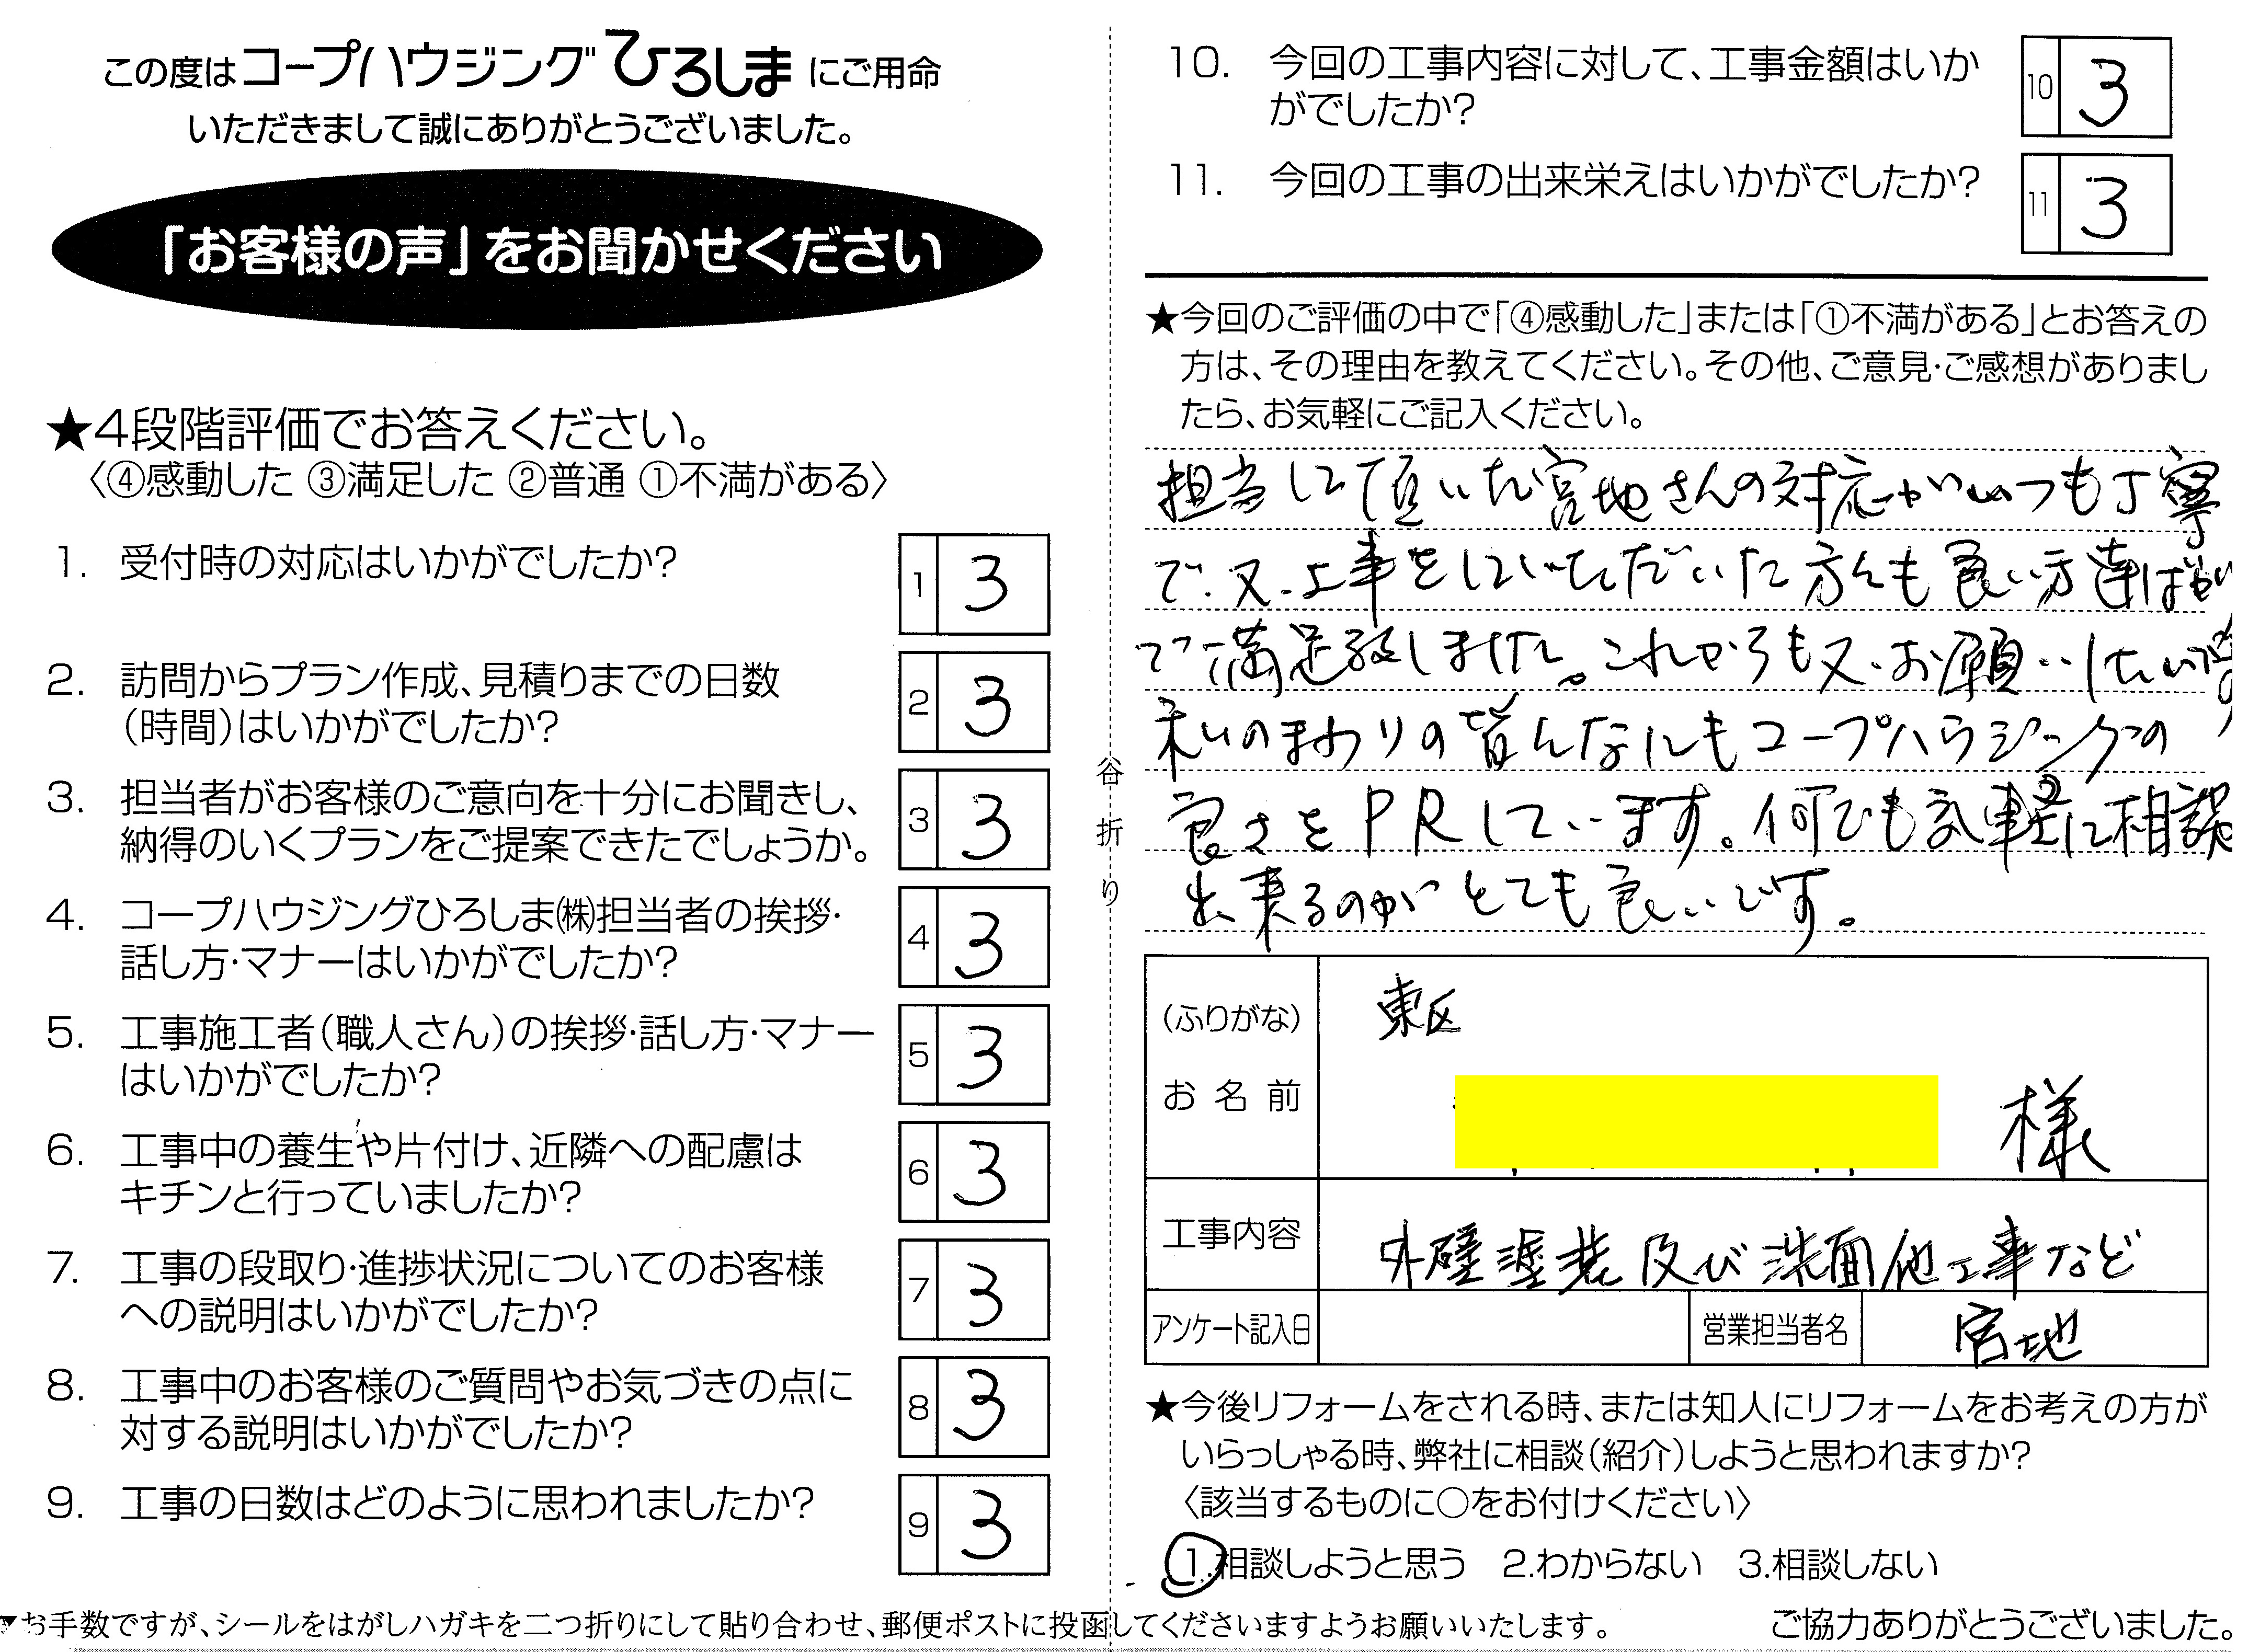 この度はコープハウジングひろしまにご用命
いただきまして誠にありがとうございました。
「お客様の声」をお聞かせください
★4段階評価でお答えください。
〈④感動した ③満足した ②普通 ①不満がある〉
1. 受付時の対応はいかがでしたか?
1 3
2. 訪問からプラン作成、見積りまでの日数
(時間)はいかがでしたか?
2 3
3. 担当者がお客様のご意向を十分にお聞きし、
納得のいくプランをご提案できたでしょうか。
3 3
4. コープハウジングひろしま㈱担当者の挨拶・
話し方・マナーはいかがでしたか?
4 3
5. 工事施工者(職人さん)の挨拶・話し方・マナー
はいかがでしたか?
5 3
6. 工事中の養生や片付け、近隣への配慮は
キチンと行っていましたか?
6 3
7. 工事の段取り・進捗状況についてのお客様
への説明はいかがでしたか?
7 3
8. 工事中のお客様のご質問やお気づきの点に
対する説明はいかがでしたか?
8 3
9. 工事の日数はどのように思われましたか?
9 3
谷折り
10. 今回の工事内容に対して、工事金額はいか
がでしたか?
10 3
11. 今回の工事の出来栄えはいかがでしたか?
11 3
★今回のご評価の中で「④感動した」または「①不満がある」とお答えの
方は、その理由を教えてください。その他、ご意見・ご感想がありまし
たら、お気軽にご記入ください。
担当して頂いた宮地さんの対応がいつも丁寧
で、又、工事をしていただいた方々も良い方達ばかり
で満足致しました。これからも又、お願いしたいです
私のまわりの皆んなにもコープハウジングの
良さをPRしています。何でも気軽に相談
出来るのがとても良いです。
(ふりがな) 東区
お名前 様
工事内容 外壁塗装及び洗面他工事など
アンケート記入日 営業担当者名 宮地
★今後リフォームをされる時、または知人にリフォームをお考えの方が
いらっしゃる時、弊社に相談(紹介)しようと思われますか?
〈該当するものに○をお付けください〉
1.相談しようと思う 2.わからない 3.相談しない
▼お手数ですが、シールをはがしハガキを二つ折りにして貼り合わせ、郵便ポストに投函してくださいますようお願いいたします。 ご協力ありがとうございました。